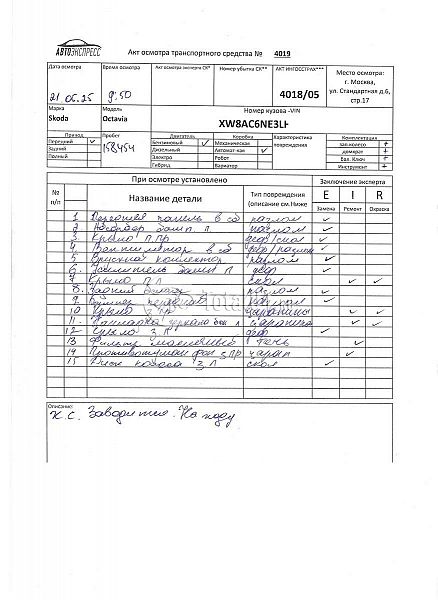 АВТОЭКСПРЕСС
Акт осмотра транспортного средства № 4019
Дата осмотра
Время осмотра
Акт осмотра эксперта СК*
Номер убытка СК**
АКТ ИНГОССТРАХ***
Место осмотра:
г. Москва,
ул. Стандартная д.6,
стр.17
21.05.25
9:50
4018/05
Марка
Модель
Номер кузова -VIN
Skoda
Octavia
XW8AC6NE3LH
Привод
Пробег
Двигатель
Коробка
Характеристика повреждения
Комплектация
Передний ✓
158454
Бензиновый ✓
Механическая
зап.колесо +
Задний
Дизельный
Автомат-кая ✓
домкрат +
Полный
Электро
Робот
Бал. Ключ +
Гибрид
Вариатор
Инструмент +
При осмотре установлено
Заключение эксперта
№ п/п
Название детали
Тип повреждения (описание см.Ниже)
E I R
Замена Ремонт Окраска
1 Передняя панель в сб разлом ✓
2 Абсорбер разлом ✓
3 Крыло П.ПР деф/скол ✓
4 Вентилятор в сб деф/разлом ✓
5 Впускной коллектор разлом ✓
6. Усилитель П деф ✓
7 Крыло П Л скол ✓ ✓
8. Задний разлом ✓
9. Бампер передний разлом ✓
10 Крыло З ПР царапины ✓ ✓
11. зеркала бок Л царапины ✓ ✓
12 Крыло З.Л деф ✓
13 Фильтр течь ✓
14 Противотуман фон З ПР царап ✓
15 Диск колеса З.Л скол ✓
Описание:
К.С. Заводится. На ходу